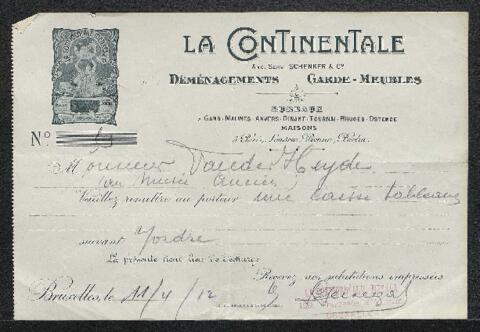 LA CONTINENTALE
Anc. Serv. SCHENKER & Co
DÉMÉNAGEMENTS GARDE-MEUBLES
BUREAUX
GAND-MALINES-ANVERS-DINANT-TOURNAI-BRUGES-OSTENDE
MAISONS
à Paris, Londres, Vienne, Berlin.
No 53
Monsieur Vander Heyde
au Musée Ancien
Veuillez remettre au porteur une caisse tableaux
suivant ordre
La présente tient lieu de décharge
Recevez nos salutations empressées
Bruxelles, le 11/4/12